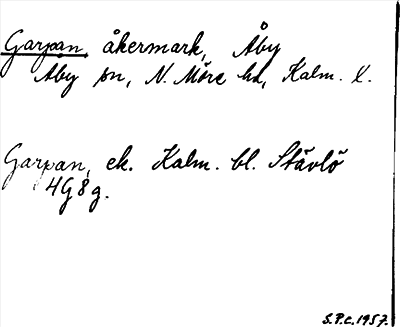 Garpan, åkermark, Åby
Åby sn, N. Möre hd, Kalm. l.
Garpan, ek. Kalm. bl. Stävlö
4G8g.
S.P.C.1957.